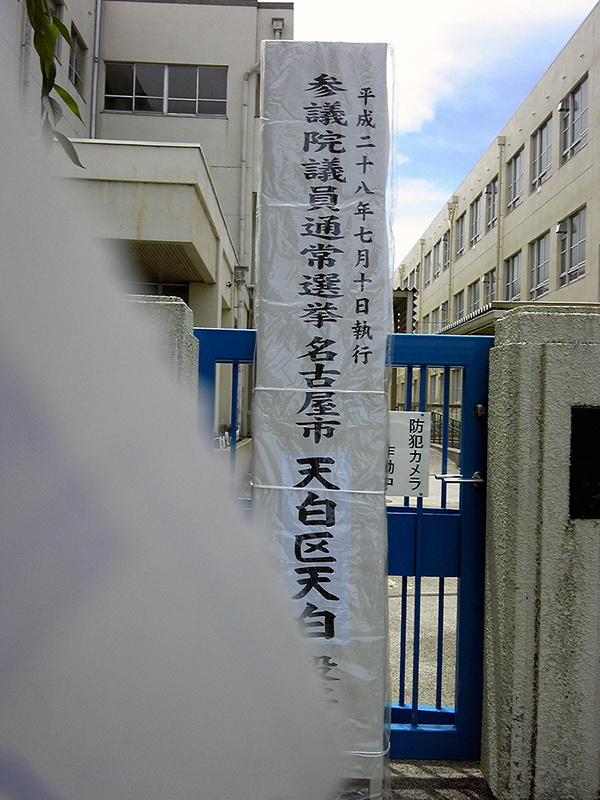 平成二十八年七月十日執行
参議院議員通常選挙名古屋市天白区天白投
防犯カメラ
作動中